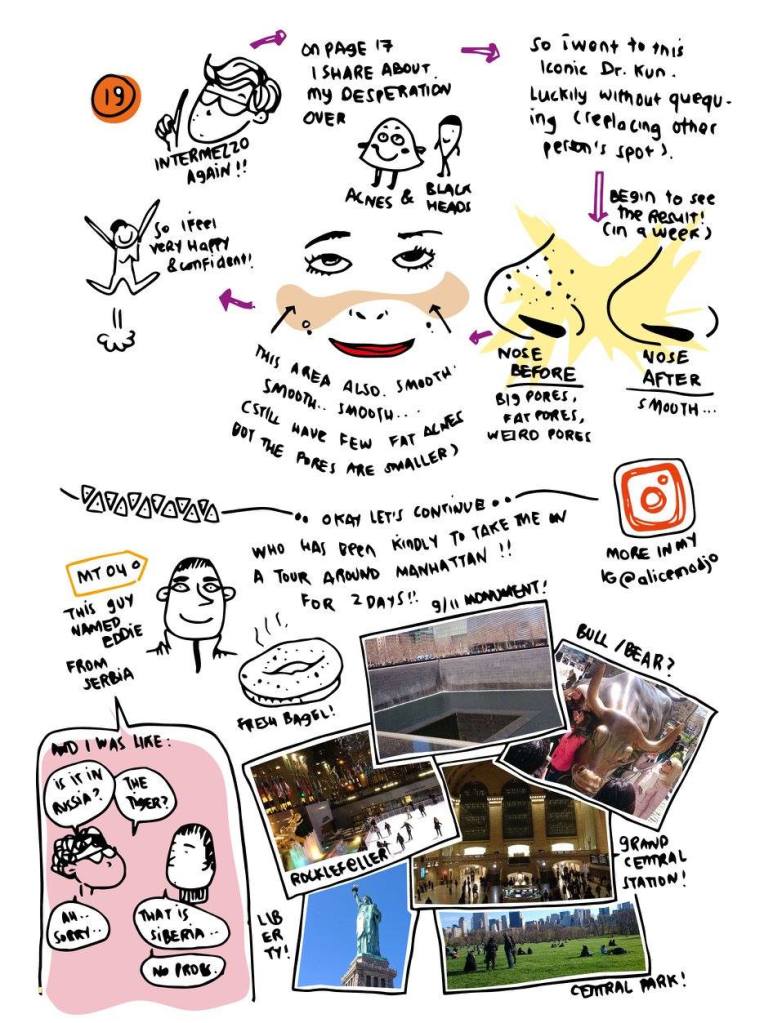 19
INTERMEZZO
AGAIN!!
ON PAGE 17
I SHARE ABOUT
MY DESPERATION
OVER
ACNES & BLACK
HEADS
So i went to this
iconic Dr. Kun.
Luckily without quequ-
ing (replacing other
person's spot).
BEgin to see
the Result!
(in a week)
NOSE
BEFORE
BIG PORES,
FAT PORES,
WEIRD PORES
NOSE
AFTER
SMOOTH...
THIS AREA ALSO. SMOOTH.
SMOOTH.. SMOOTH...
(STILL HAVE FEW FAT ACNES
BUT THE PORES ARE SMALLER)
So i feel
very Happy
& confident!
OKAY LET'S CONTINUE
WHO HAS BEEN KINDLY TO TAKE ME ON
A TOUR AROUND MANHATTAN !!
FOR 2 DAYS!!
MORE IN MY
IG @alicemodjo
MT 04
THIS GUY
NAMED
EDDIE
FROM
SERBIA
FRESH BAGEL!
9/11 MONUMENT!
BULL / BEAR?
AND I WAS LIKE:
IS IT IN
RUSSIA?
THE
TIGER?
AH..
SORRY..
THAT IS
SIBERIA..
NO PROB.
ROCKLEFELLER
GRAND
CENTRAL
STATION!
LIB
ER
TY!
CENTRAL PARK!